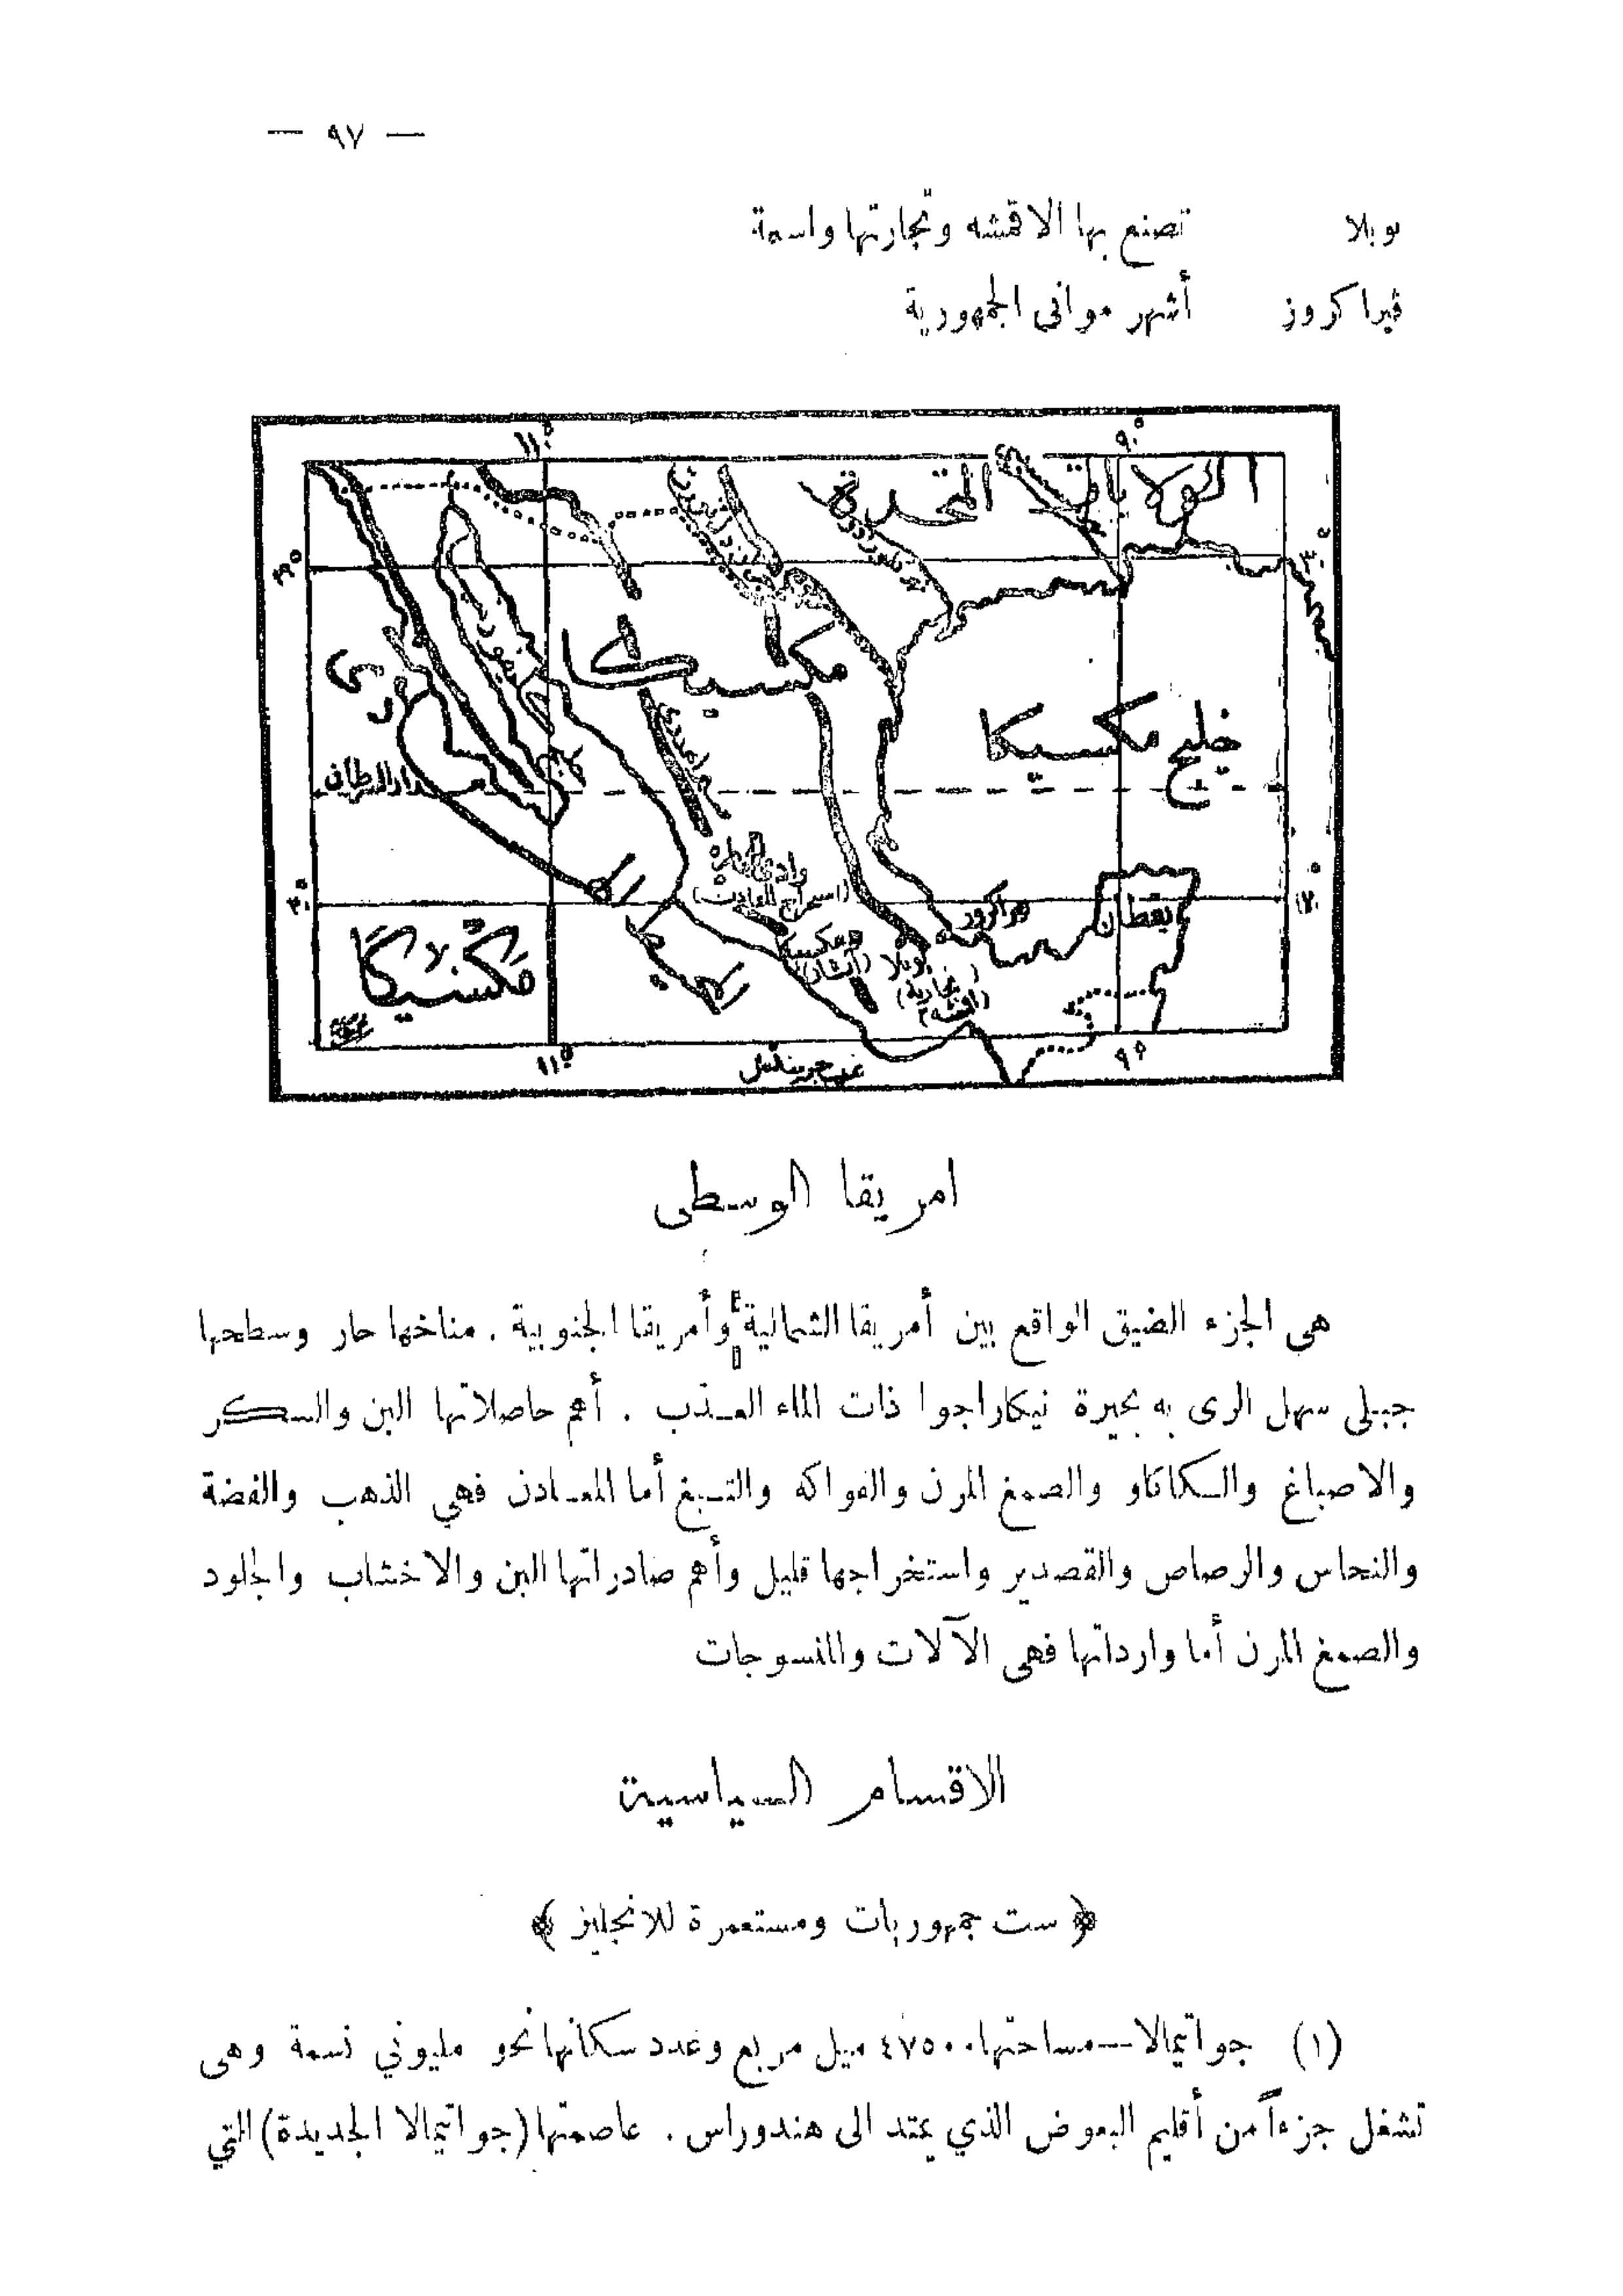 — ٩٧ —
بوبلا تصنع بها الاقمشه وتجارتها واسعة
فيرا كروز أشهر موانى الجمهورية
١١٠°
٩٠°
الولايات المتحدة
٣٠°
٣٠°
مكسيكا
خليج مكسيكا
مدار السرطان
٢٠°
٢٠°
فيراكروز
يقطان
مكسيكا
بوبلا
(تجارية)
١١٠°
٩٠°
امريقا الوسطى
هى الجزء الضيق الواقع بين أمريقا الشمالية وأمريقا الجنوبية . مناخها حار وسطحها
جبلى سهل الرى به بحيرة نيكاراجوا ذات الماء العذب . أهم حاصلاتها البن والسكر
والاصباغ والكاكاو والصمغ المرن والفواكه والتبغ أما المعادن فهي الذهب والفضة
والنحاس والرصاص والقصدير واستخراجها قليل وأهم صادراتها البن والاخشاب والجلود
والصمغ المرن أما وارداتها فهى الآلات والمنسوجات
الاقسام السياسية
﴿ ست جمهوريات ومستعمرة للانجليز ﴾
(١) جواتيمالا — مساحتها ٤٧٥٠٠ ميل مربع وعدد سكانها نحو مليوني نسمة وهى
تشغل جزءاً من أقليم البعوض الذي يمتد الى هندوراس . عاصمتها (جواتيمالا الجديدة) التي